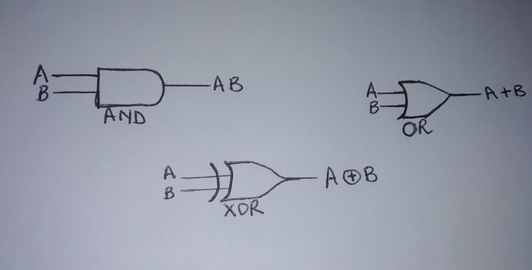 A
B
AB
AND
A
B
A+B
OR
A
B
A⊕B
XOR